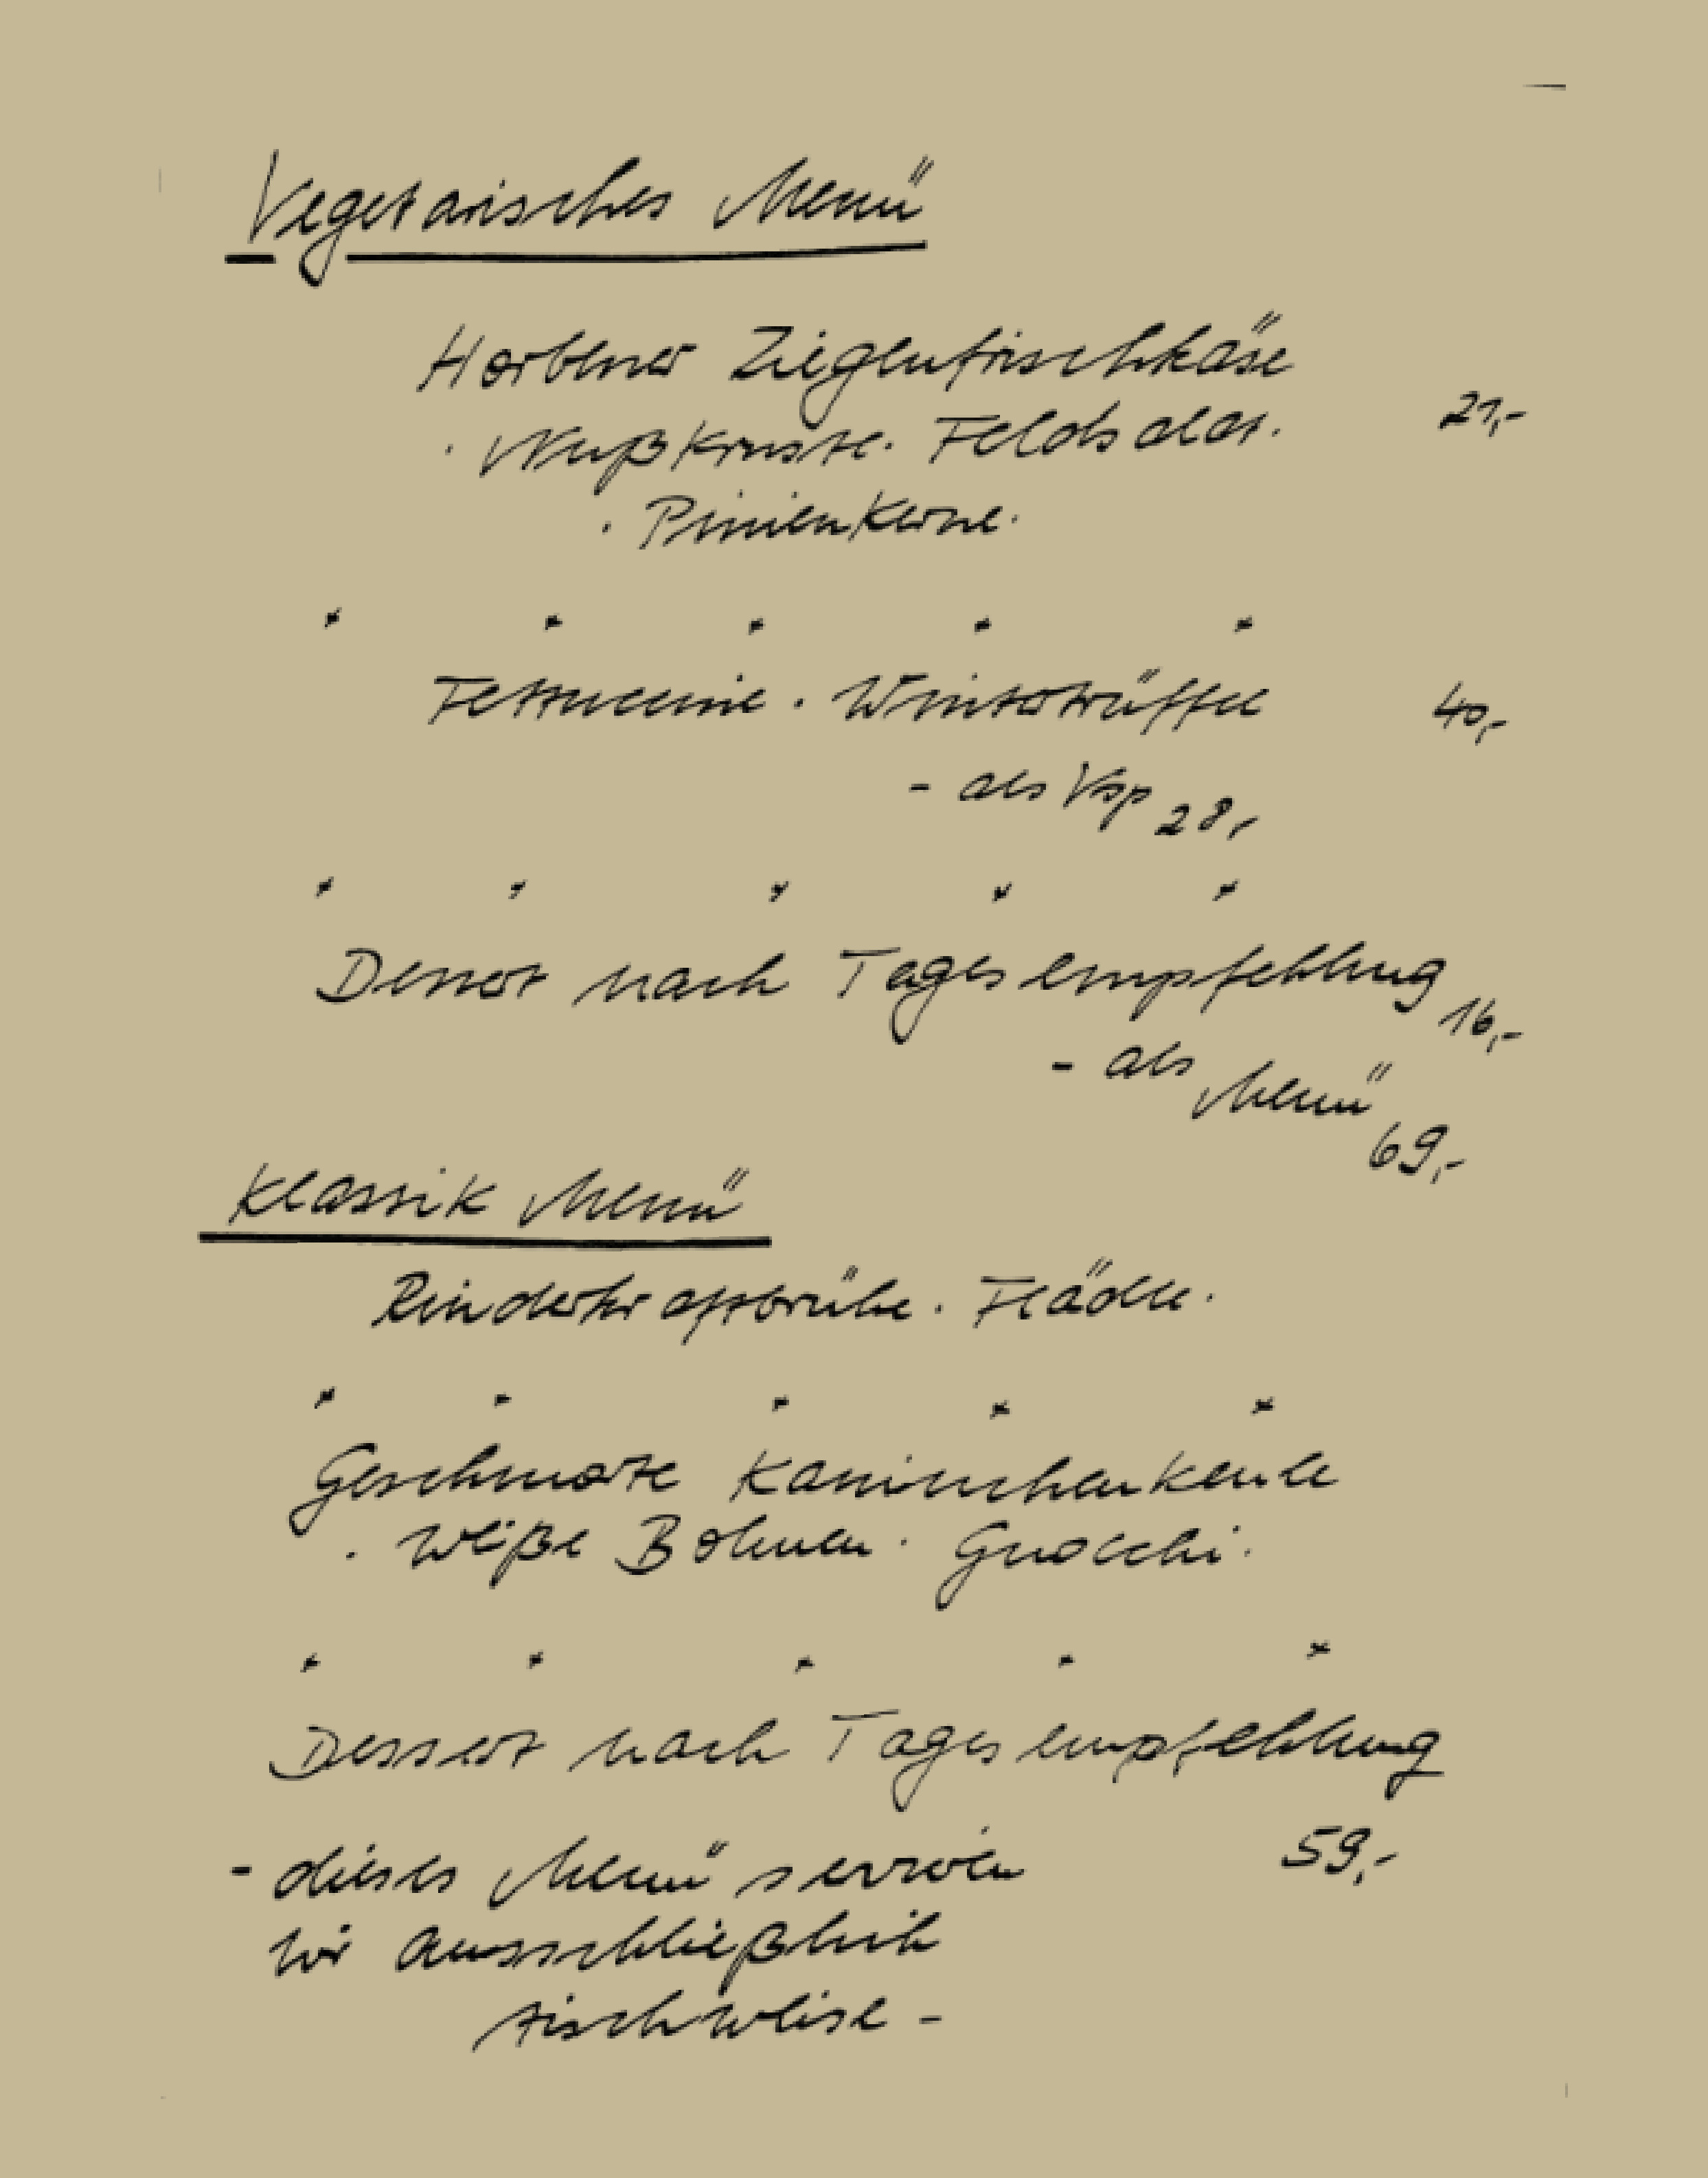 Vegetarisches Menü
Horbener Ziegenfrischkäse
· Nußkruste · Feldsalat · 21,-
· Pinienkerne ·
Fettuccine · Wintertrüffel 40,-
- als Vsp 28,-
Dessert nach Tagesempfehlung 16,-
- als Menü 69,-
Klassik Menü
Rinderkraftbrühe · Flädle ·
Geschmorte Kaninchenkeule
· Weiße Bohnen · Gnocchi ·
Dessert nach Tagesempfehlung
- dieses Menü servieren 59,-
wir ausschließlich
tischweise -